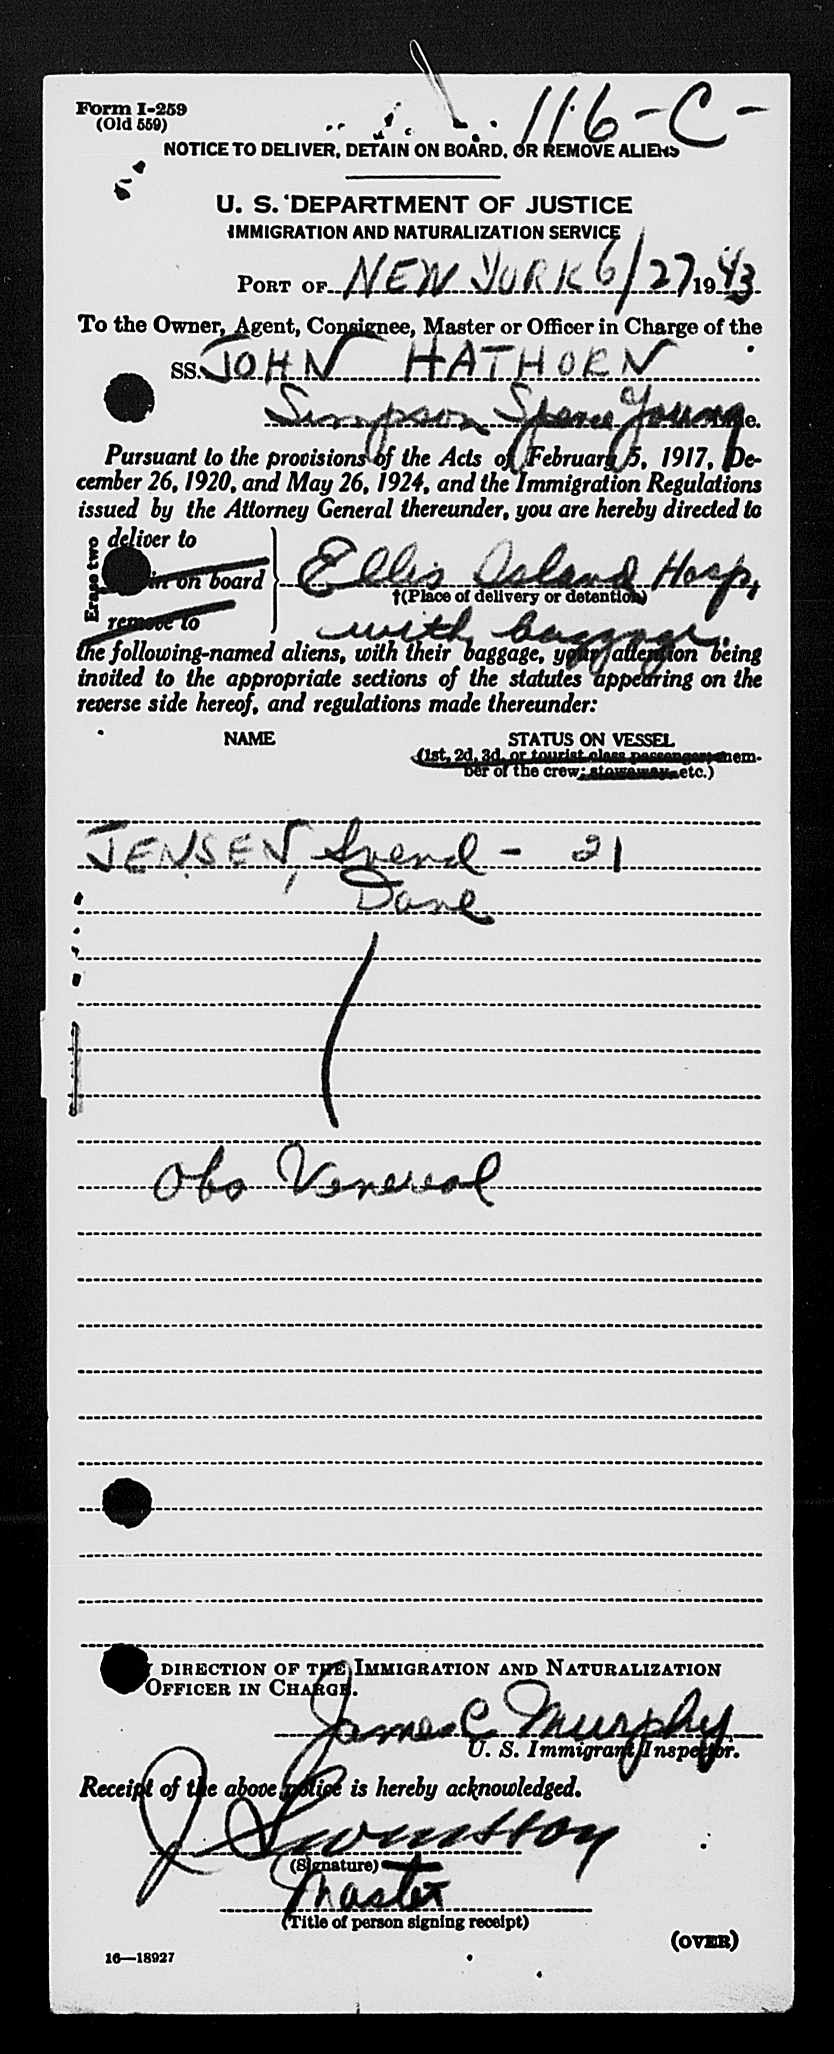 Form I-259
(Old 559)
116-C-
NOTICE TO DELIVER, DETAIN ON BOARD, OR REMOVE ALIENS
U. S. DEPARTMENT OF JUSTICE
IMMIGRATION AND NATURALIZATION SERVICE
PORT OF NEW YORK 6/27 1943
To the Owner, Agent, Consignee, Master or Officer in Charge of the
SS. JOHN HATHORN
Simpson Spence Young Line.
Pursuant to the provisions of the Acts of February 5, 1917, De-
cember 26, 1920, and May 26, 1924, and the Immigration Regulations
issued by the Attorney General thereunder, you are hereby directed to
Erase two
deliver to
in on board
Ellis Island Hosp,
†(Place of delivery or detention)
remove to
with baggage.
the following-named aliens, with their baggage, your attention being
invited to the appropriate sections of the statutes appearing on the
reverse side hereof, and regulations made thereunder:
NAME STATUS ON VESSEL
(1st, 2d, 3d, or tourist class passenger; mem-
ber of the crew; stowaway, etc.)
JENSEN, Svend - 21
Dane
Obs Venereal
DIRECTION OF THE IMMIGRATION AND NATURALIZATION
OFFICER IN CHARGE.
James C Murphy
U. S. Immigrant Inspector.
Receipt of the above notice is hereby acknowledged.
J
(Signature)
Master
(Title of person signing receipt)
(OVER)
16—18927